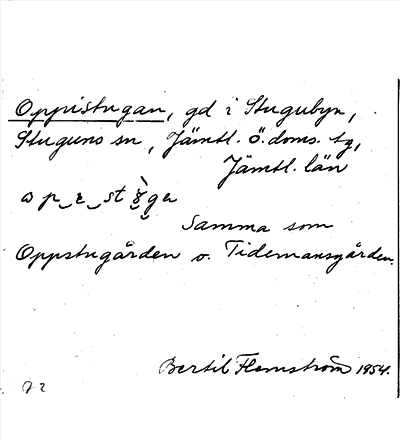 Oppistugan, gd i Stugubyn,
Stuguns sn, Jämtl. ö. doms. tg,
Jämtl. län
Samma som
Oppstugården o. Tidemansgården.
Bertil Flemström 1954.